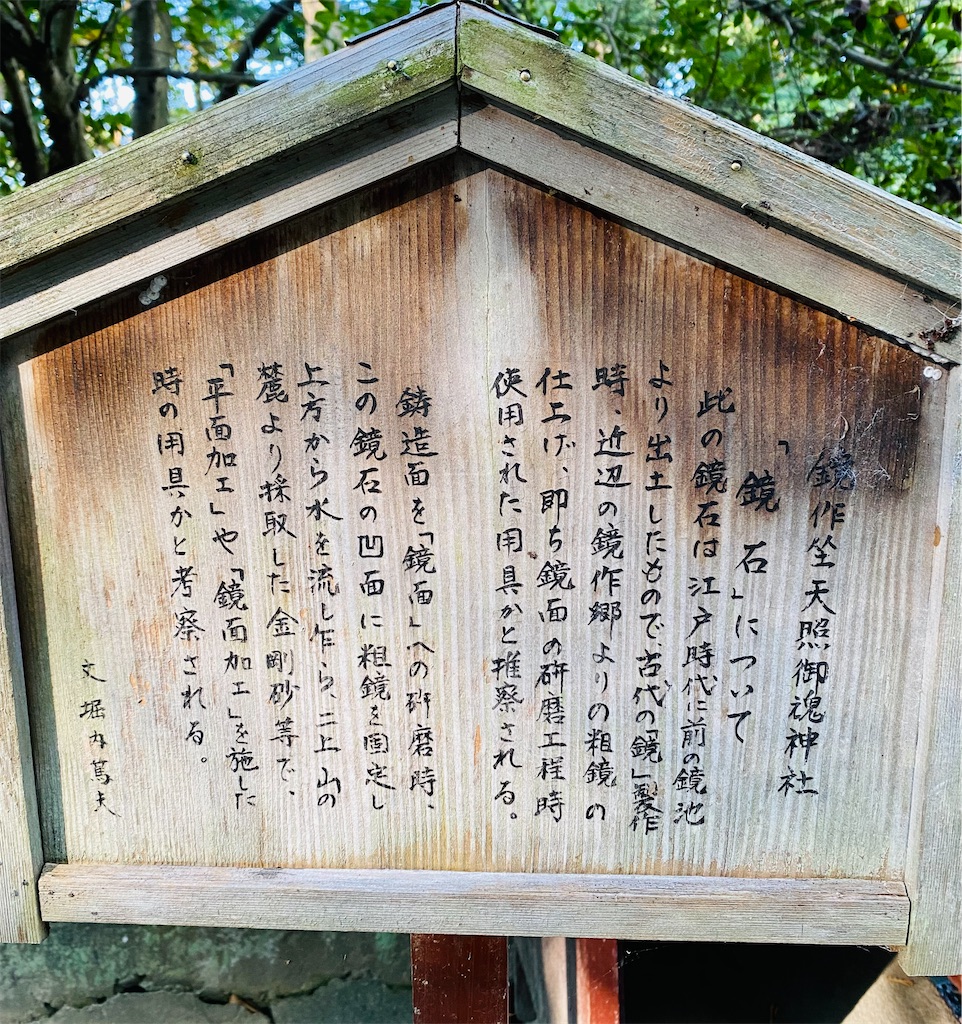 鏡作坐天照御魂神社
「鏡石」について
此の鏡石は江戸時代に前の鏡池
より出土したもので、古代の「鏡」製作
時、近辺の鏡作郷よりの粗鏡の
仕上げ、即ち鏡面の研磨工程時
使用された用具かと推察される。
鋳造面を「鏡面」への研磨時、
この鏡石の凹面に粗鏡を固定し
上方から水を流し乍ら、二上山の
麓より採取した金剛砂等で、
「平面加工」や「鏡面加工」を施した
時の用具かと考察される。
文堀内篤夫